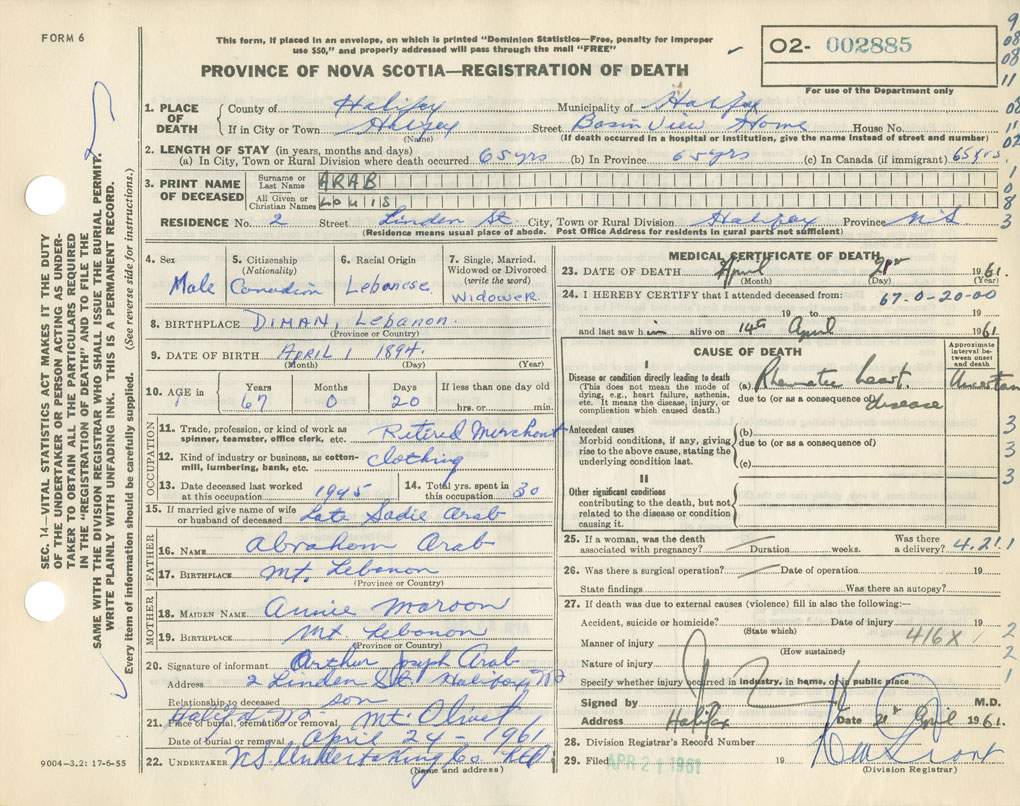 FORM 6
This form, if placed in an envelope, on which is printed "Dominion Statistics—Free, penalty for improper
use $50," and properly addressed will pass through the mail "FREE"
O2- 002885
For use of the Department only
PROVINCE OF NOVA SCOTIA—REGISTRATION OF DEATH
1. PLACE OF DEATH { County of Halifax Municipality of Halifax
If in City or Town Halifax Street Basin View Home House No.
(Name) (If death occurred in a hospital or institution, give the name instead of street and number)
2. LENGTH OF STAY (in years, months and days)
(a) In City, Town or Rural Division where death occurred 65 yrs (b) In Province 65 yrs (c) In Canada (if immigrant) 65 yrs.
3. PRINT NAME OF DECEASED
Surname or Last Name ARAB
All Given or Christian Names LOUIS
RESIDENCE No. 2 Street Linden St City, Town or Rural Division Halifax Province N.S
(Residence means usual place of abode. Post Office Address for residents in rural parts not sufficient)
4. Sex Male
5. Citizenship (Nationality) Canadian
6. Racial Origin Lebanese
7. Single, Married, Widowed or Divorced (write the word) WIDOWER
8. BIRTHPLACE DIMAN, Lebanon.
(Province or Country)
9. DATE OF BIRTH APRIL 1 1894.
(Month) (Day) (Year)
10. AGE in Years 67 Months 0 Days 20 If less than one day old hrs. or min.
OCCUPATION
11. Trade, profession, or kind of work as spinner, teamster, office clerk, etc. Retired Merchant
12. Kind of industry or business, as cotton-mill, lumbering, bank, etc. Clothing
13. Date deceased last worked at this occupation 1945
14. Total yrs. spent in this occupation 30
15. If married give name of wife or husband of deceased Late Sadie Arab
FATHER
16. NAME Abraham Arab
17. BIRTHPLACE Mt. Lebanon
(Province or Country)
MOTHER
18. MAIDEN NAME Annie Maroon
19. BIRTHPLACE Mt. Lebanon
(Province or Country)
20. Signature of informant Arthur Joseph Arab
Address 2 Linden St. Halifax, NS
Relationship to deceased son
21. Place of burial, cremation or removal Halifax NS Mt. Olivet
Date of burial or removal April 24 - 1961
22. UNDERTAKER N.S. Undertaking Co
(Name and address)
9004—3.2: 17-6-55
MEDICAL CERTIFICATE OF DEATH
23. DATE OF DEATH April 21st 1961.
(Month) (Day) (Year)
24. I HEREBY CERTIFY that I attended deceased from: 67-0-20-00
19 to 19
and last saw him alive on 14th April 1961
CAUSE OF DEATH
Approximate interval between onset and death
I
Disease or condition directly leading to death (a) Rheumatic heart disease
(This does not mean the mode of dying, e.g., heart failure, asthenia, etc. It means the disease, injury, or complication which caused death.)
due to (or as a consequence of)
Antecedent causes
Morbid conditions, if any, giving rise to the above cause, stating the underlying condition last.
(b)
due to (or as a consequence of)
(c)
II
Other significant conditions
contributing to the death, but not related to the disease or condition causing it.
25. If a woman, was the death associated with pregnancy? Duration weeks. Was there a delivery? 4.21.1
26. Was there a surgical operation? Date of operation 19
State findings Was there an autopsy?
27. If death was due to external causes (violence) fill in also the following:—
Accident, suicide or homicide? Date of injury 19
(State which)
Manner of injury 416X
(How sustained)
Nature of injury
Specify whether injury occurred in industry, in home, or in public place
Signed by M.D.
Address Halifax Date 21st April 1961.
28. Division Registrar's Record Number
29. Filed APR 21 1961 19
(Division Registrar)
SEC. 14—VITAL STATISTICS ACT MAKES IT THE DUTY
OF THE UNDERTAKER OR PERSON ACTING AS UNDER-
TAKER TO OBTAIN ALL THE PARTICULARS REQUIRED
IN THE "REGISTRATION OF DEATH" AND TO FILE THE
SAME WITH THE DIVISION REGISTRAR WHO SHALL ISSUE THE BURIAL PERMIT.
WRITE PLAINLY WITH UNFADING INK. THIS IS A PERMANENT RECORD.
Every item of information should be carefully supplied. (See reverse side for instructions.)